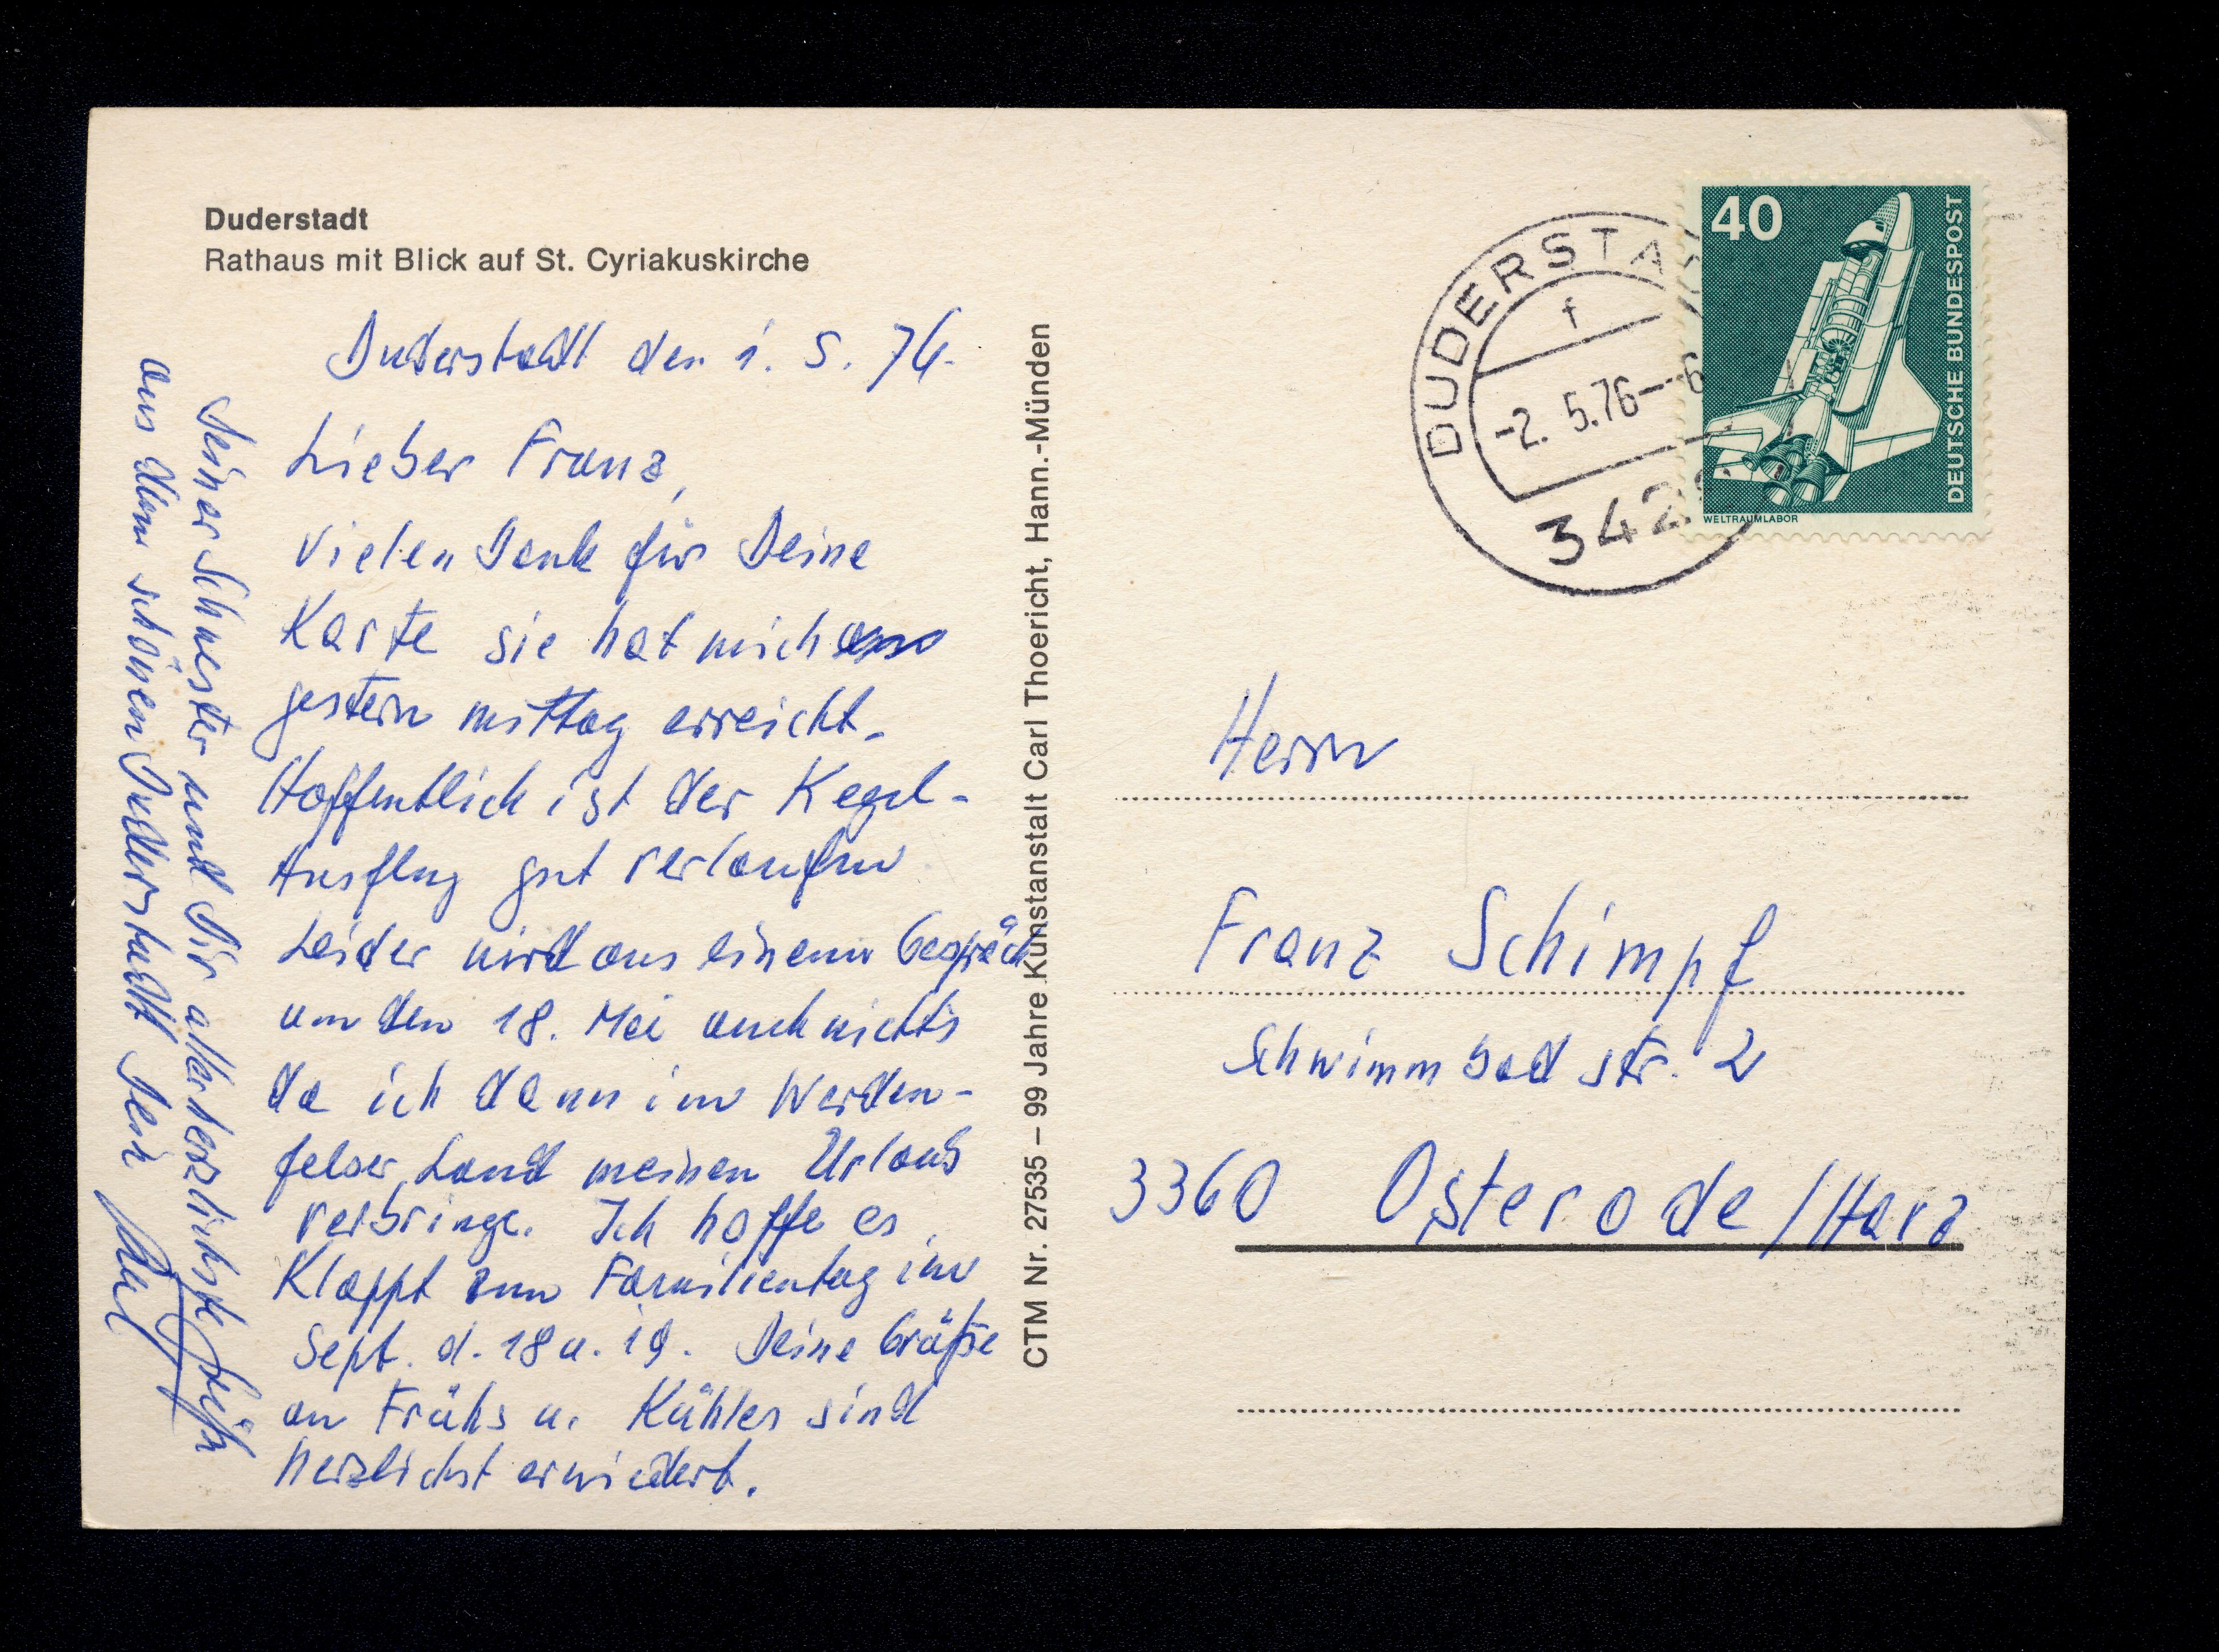 Duderstadt
Rathaus mit Blick auf St. Cyriakuskirche
Duderstadt den 1. 5. 76.
Lieber Franz,
vielen Dank für Deine
Karte sie hat mich
gestern mittag erreicht.
Hoffentlich ist der Kegel-
Ausflug gut verlaufen
Leider wird aus einem Gespräch
um den 18. Mai auch nichts
da ich dann im Werden-
felser Land meinen Urlaub
verbringe. Ich hoffe es
Klappt zum Familientag im
Sept. d. 18 u. 19. Deine Grüße
an Frühs u. Kühles sind
herzlichst erwiedert.
Deiner Schwester und Dir allerherzlichste Grüße
aus dem schönen Duderstadt Dein
CTM Nr. 27535 – 99 Jahre Kunstanstalt Carl Thoericht, Hann.-Münden
DUDERSTA
f
-2. 5.76--6
342
40
DEUTSCHE BUNDESPOST
WELTRAUMLABOR
Herrn
Franz Schimpf
Schwimmbad str. 2
3360 Osterode/Harz